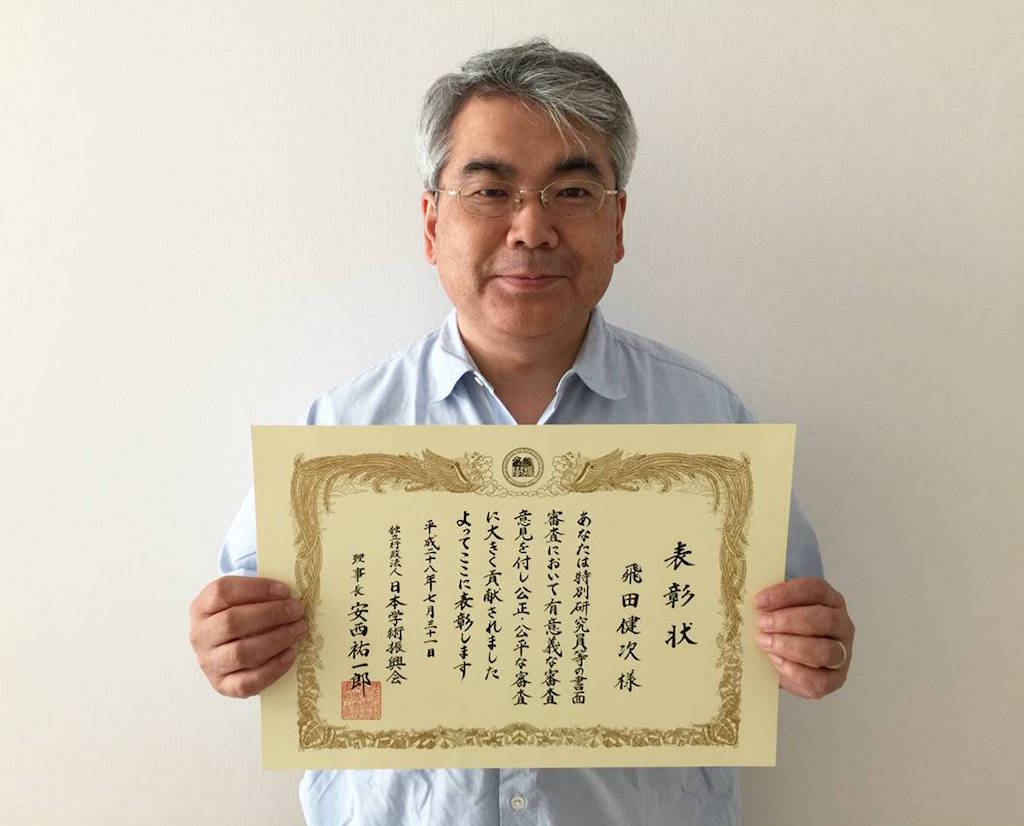 表彰状
飛田健次様
あなたは特別研究員等の書面
審査において有意義な審査
意見を付し公正・公平な審査
に大きく貢献されました
よってここに表彰します
平成二十八年七月三十一日
独立行政法人日本学術振興会
理事長 安西祐一郎